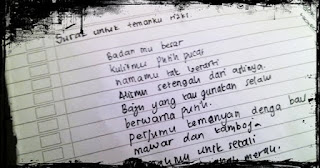 Surat untuk temanku rizki
Badan mu besar
Kulitmu putih pucat
namamu tak berarti
Alismu setengah dari aslinya.
Baju yang kau gunakan selalu
berwarna putih.
perfumu temanyan denga bau
mawar dan kamboja
mu unik sekali
merah.